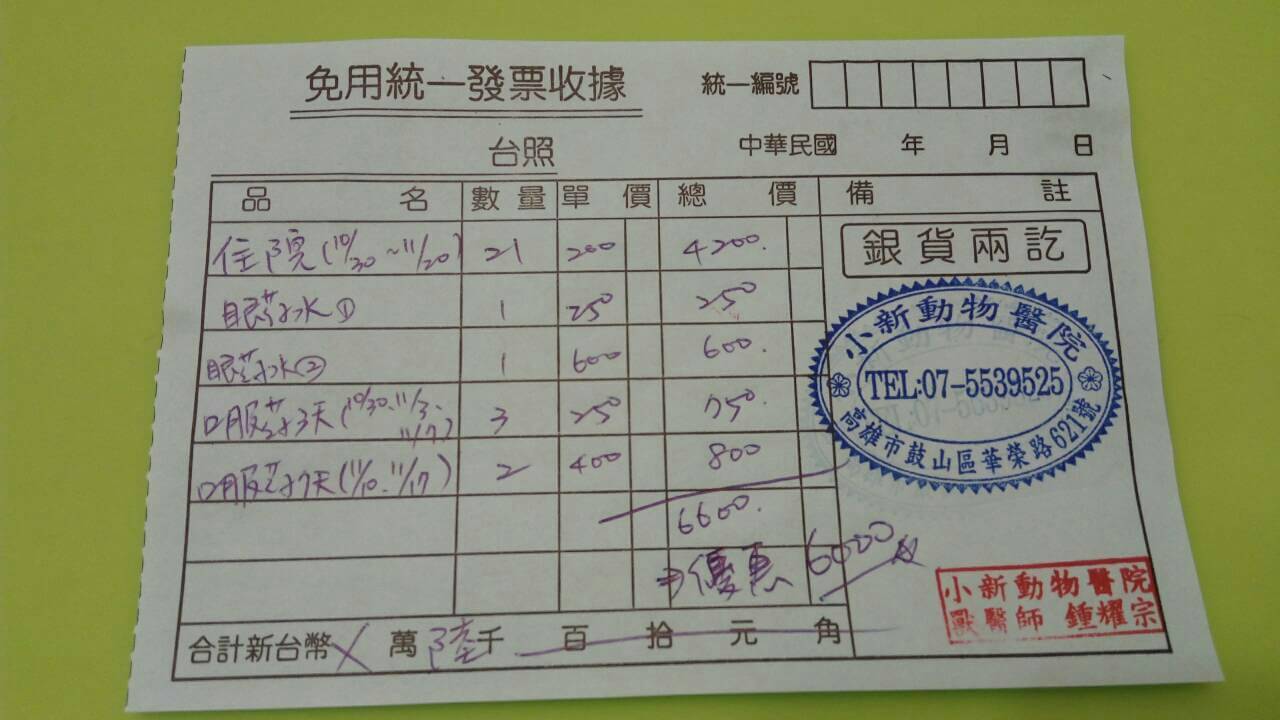 免用統一發票收據
統一編號
台照
中華民國 年 月 日
品名 數量 單價 總價 備註
住院(10/30~11/20) 21 200 4200.
眼药水① 1 250 250
眼药水② 1 600 600.
口服药3天(10/30、11/3、11/7) 3 250 750.
口服药7天(11/10、11/17) 2 400 800
6600.
⇒優惠 6000
合計新台幣 X 萬 陸 千 百 拾 元 角
銀貨兩訖
小新動物醫院
TEL:07-5539525
高雄市鼓山區華榮路621號
小新動物醫院
獸醫師 鍾耀宗